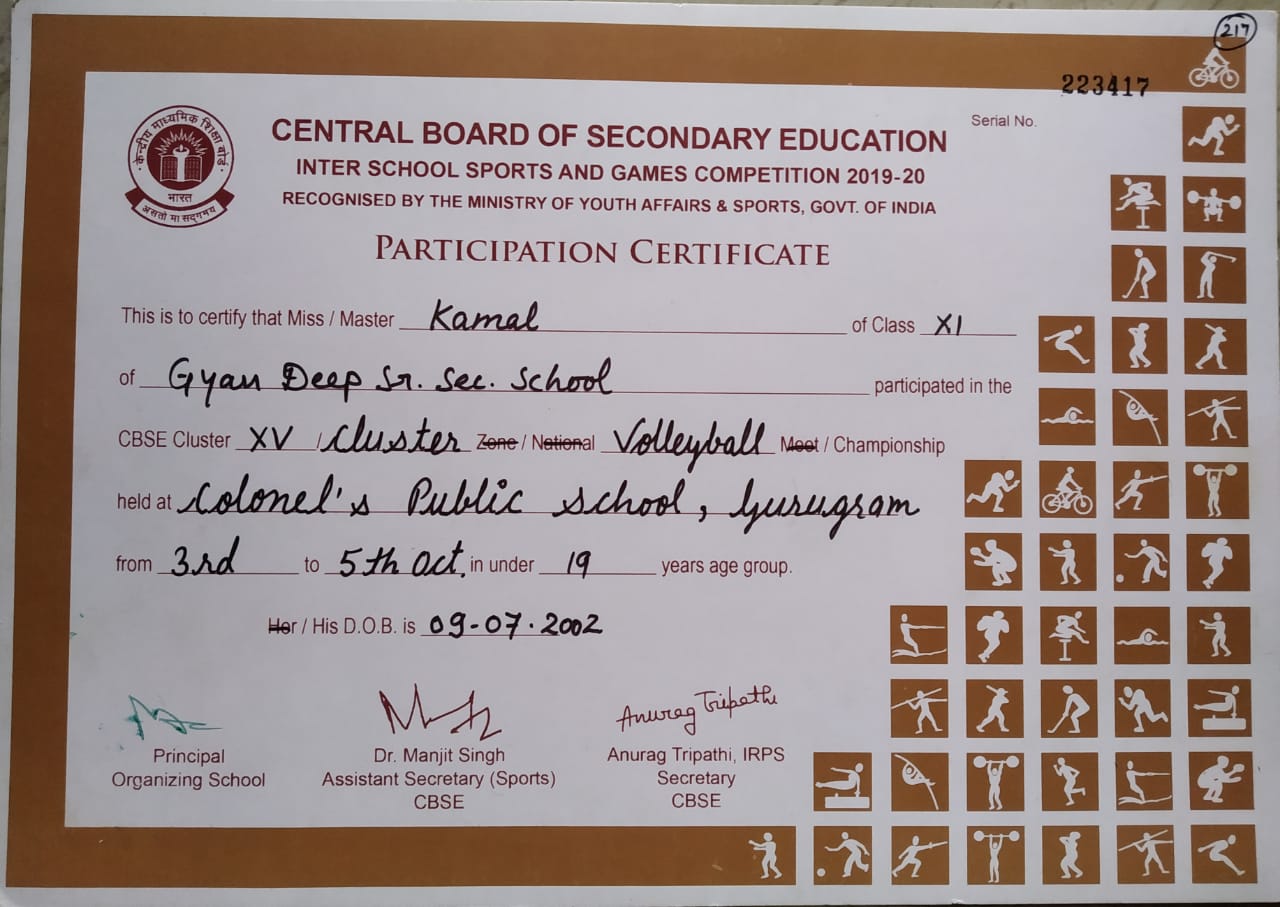 217
223417
Serial No.
केन्द्रीय माध्यमिक शिक्षा बोर्ड
भारत
असतो मा सद्गमय
CENTRAL BOARD OF SECONDARY EDUCATION
INTER SCHOOL SPORTS AND GAMES COMPETITION 2019-20
RECOGNISED BY THE MINISTRY OF YOUTH AFFAIRS & SPORTS, GOVT. OF INDIA
PARTICIPATION CERTIFICATE
This is to certify that Miss / Master Kamal of Class XI
of Gyan Deep Sr. Sec. School participated in the
CBSE Cluster XV / Cluster Zone / National Volleyball Meet / Championship
held at Colonel's Public School, Gurugram
from 3rd to 5th Oct. in under 19 years age group.
Her / His D.O.B. is 09-07-2002
Anurag Tripathi
Principal Dr. Manjit Singh Anurag Tripathi, IRPS
Organizing School Assistant Secretary (Sports) Secretary
CBSE CBSE